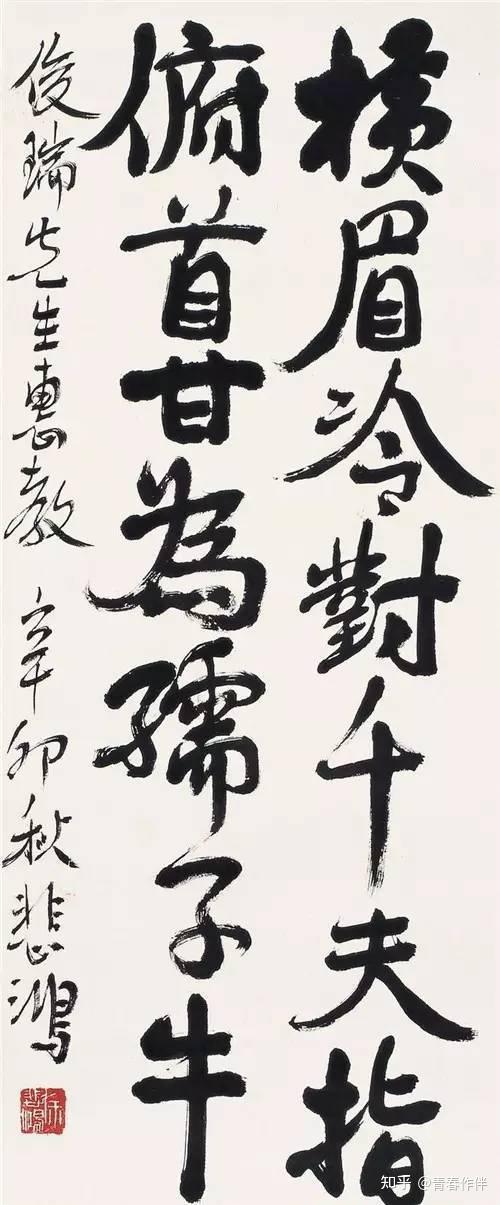 横眉冷對千夫指
俯首甘為孺子牛
俊瑞先生惠教 辛卯秋悲鴻
知乎 @青春作伴